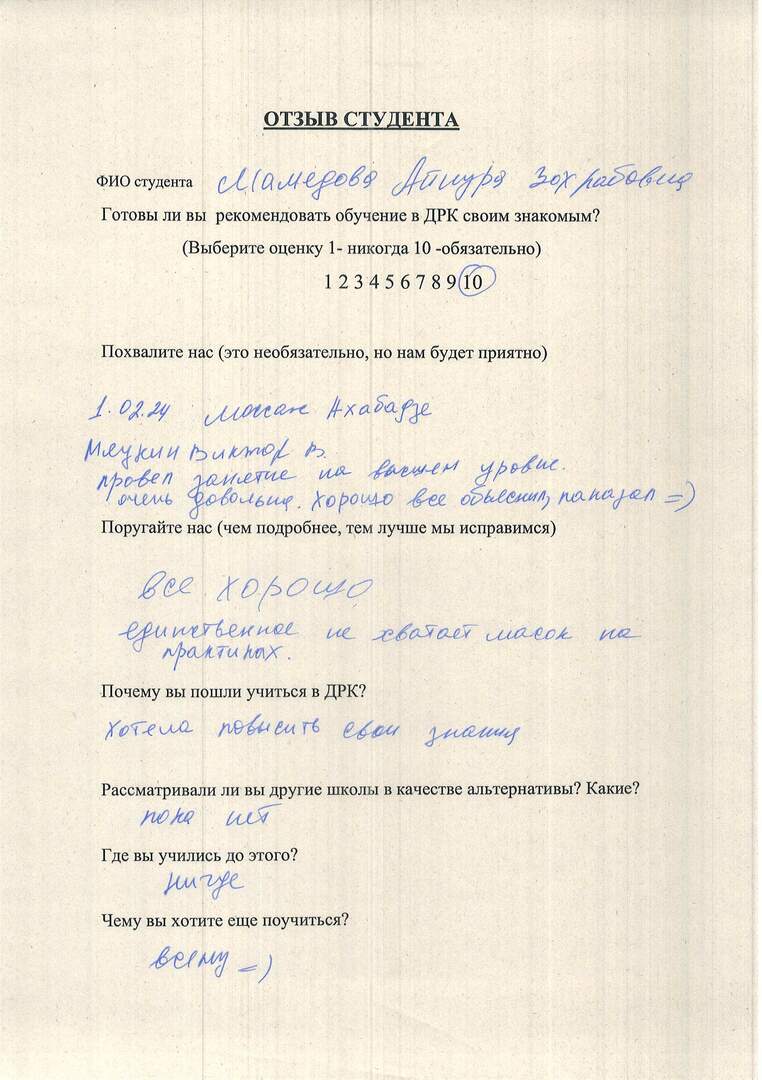 ОТЗЫВ СТУДЕНТА
ФИО студента Мамедова Айнура Зохрабовна
Готовы ли вы рекомендовать обучение в ДРК своим знакомым?
(Выберите оценку 1- никогда 10 -обязательно)
1 2 3 4 5 6 7 8 9 10
Похвалите нас (это необязательно, но нам будет приятно)
1.02.24 Массаж Ахабадзе
Мяукин Виктор В.
провел занятие на высшем уровне.
очень довольна. Хорошо все объяснил, показал =)
Поругайте нас (чем подробнее, тем лучше мы исправимся)
все хорошо
единственное не хватает масок на
практиках.
Почему вы пошли учиться в ДРК?
Хотела повысить свои знания
Рассматривали ли вы другие школы в качестве альтернативы? Какие?
пока нет
Где вы учились до этого?
нигде
Чему вы хотите еще поучиться?
всему =)